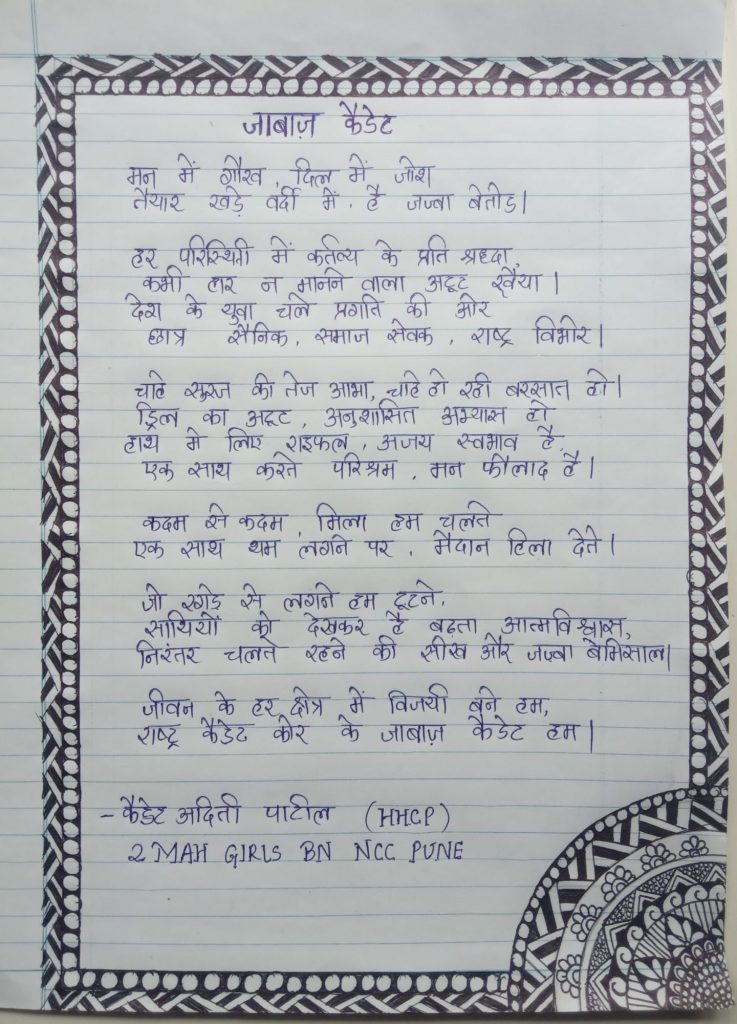 जाबाज़ कैडेट
मन में गौरव, दिल में जोश
तैयार खड़े वर्दी में, है जज्बा बेतोड।
हर परिस्थिती में कर्तव्य के प्रति श्रद्दा,
कभी हार न मानने वाला अटूट रवैया।
देश के युवा चले प्रगति की ओर
छात्र सैनिक, समाज सेवक, राष्ट्र विभोर।
चाहे सुरज की तेज आभा, चाहे हो रही बरसात हो।
ड्रिल का अटूट, अनुशासित अभ्यास हो
हाथ मे लिए राइफल, अजय स्वभाव है,
एक साथ करते परिश्रम, मन फौलाद है।
कदम से कदम, मिला हम चलते
एक साथ थम लगने पर, मैदान हिला देते।
जो रगडे से लगने हम टूटने,
साथियों को देखकर है बढ़ता आत्मविश्वास,
निरंतर चलते रहने की सीख और जज़्बा बेमिसाल।
जीवन के हर क्षेत्र में विजयी बने हम,
राष्ट्र कैडेट कोर के जाबाज़ कैडेट हम।
- कैडेट अदिती पाटील (HHCP)
2 MAH GIRLS BN NCC PUNE